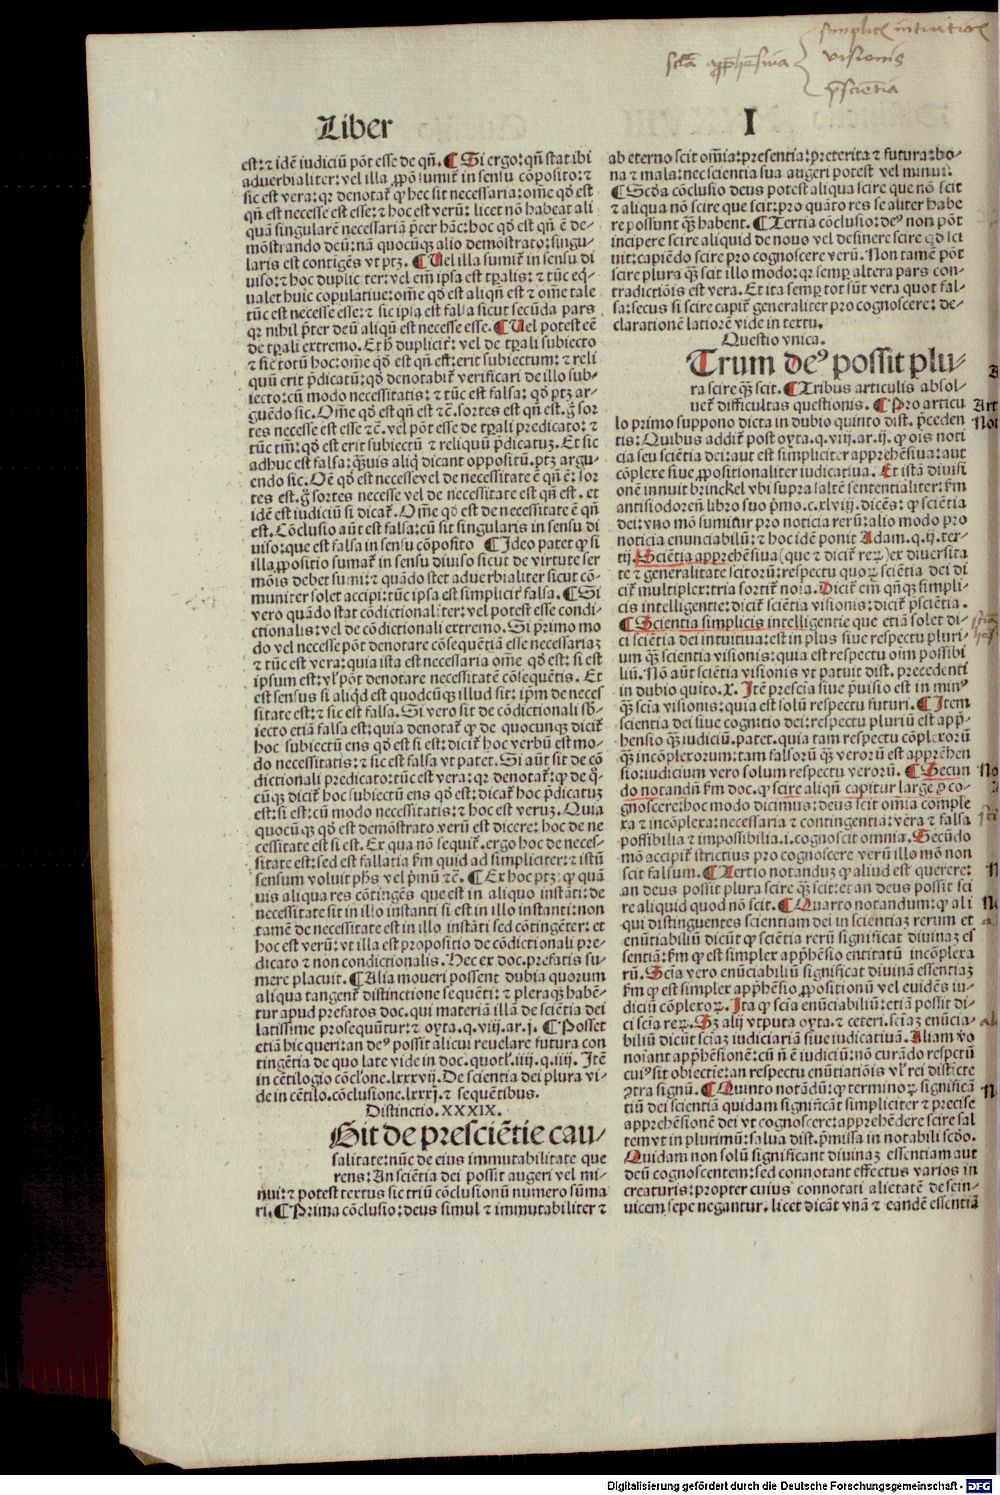 simplicis intuitiōis
sciā apprehēsiua visionis
p̄scientia
Liber I
est: ⁊ idē iudiciū pōt esse de qn̄. ¶ Si ergo: qn̄ stat ibi
aduerbialiter: vel illa ꝓpō sumit̄ in sensu cōposito: ⁊
sic est vera: qr denotat̄ ꝙ hec sit necessaria: om̄e qd̄ est
qn̄ est necesse est esse: ⁊ hoc est verū: licet nō habeat ali
quā singularē necessariā p̄ter hāc: hoc qd̄ est qn̄ ē de-
mōstrando deū: nā quocūqꝫ alio demōstrato: singu-
laris est contigēs vt ptꝫ. ¶ Uel illa sumit̄ in sensu di
uiso: ⁊ hoc duplicitcr: vel em̄ ipsa est tꝑalis: ⁊ tūc eq̄-
ualet huic copulatiue: om̄e qd̄ est aliqn̄ est ⁊ om̄e tale
tūc est necesse esse: ⁊ sic ipsa est falsa sicut secūda pars
qr nihil p̄ter deū aliqn̄ est necesse esse. ¶ Uel potest eē
de tꝑali extremo. Et h̄ duplicit̄: vel de tꝑali subiecto
⁊ sic totū hoc: om̄e qd̄ est qn̄ est: erit subiectum: ⁊ reli
quū erit p̄dicatū: qd̄ denotabit̄ verificari de illo sub-
iecto: cū modo necessitatis: ⁊ tūc est falsa: qd̄ ptꝫ ar-
guēdo sic. Om̄e qd̄ est qn̄ est ⁊ē. sortes est qn̄ est. g̊ sor
tes necesse est esse ⁊ē. vel pōt esse de tꝑali predicato: ⁊
tūc tm̄: qd̄ est erit subiectū ⁊ reliquū p̄dicatuꝫ. Et sic
adhuc est falsa: qꝫuis aliq̄ dicant oppositū. ptꝫ argu-
endo sic. Oē qd̄ est necesse vel de necessitate ē qn̄ ē: sor
tes est. g̊ sortes necesse vel de necessitate est qn̄ est. et
idē est iudiciū si dicat̄. Om̄e qd̄ est de necessitate ē qn̄
est. Cōclusio aūt est falsa: cū sit singularis in sensu di
uiso: que est falsa in sensu cōposito ¶ Ideo patet ꝙ si
illa ꝓpositio sumat̄ in sensu diuiso sicut de virtute ser
mōis debet sumi: ⁊ quādo stet aduerbialiter sicut cō-
muniter solet accipi: tūc ipsa est simplicit̄ falsa. ¶ Si
vero quādo stat cōdictionaliter: vel potest esse condi-
ctionalis: vel de cōdictionali extremo. Si primo mo
do vel necesse pōt denotare cōsequētiā esse necessariaꝫ
⁊ tūc est vera: quia ista est necessaria om̄e qd̄ est: si est
ipsum est: vl̓ pōt denotare necessitatē cōsequētis. Et
est sensus si aliqd̄ est quodcūqꝫ illud sit: ip̄m de neces
sitate est: ⁊ sic est falsa. Si vero sit de cōdictionali sb̄-
iecto etiā falsa est: quia denotat̄ ꝙ de quocunqꝫ dicit̄
hoc subiectū ens qd̄ est si est: dicit̄ hoc verbū est mo-
do necessitatis: ⁊ sic est falsa vt patet. Si aūt sit de cō
dictionali predicato: tūc est vera: qr denotat̄: ꝙ de q̄-
cūqꝫ dicit̄ hoc subiectū ens qd̄ est: dicat̄ hoc p̄dicatuꝫ
est: si est: cū modo necessitatis: ⁊ hoc est veruꝫ. Quia
quocūqꝫ qd̄ est demōstrato verū est dicere: hoc de ne
cessitate est si est. Ex qua nō sequit̄. ergo hoc de neces-
sitate est: sed est fallatia fm̄ quid ad simpliciter: ⁊ istū
sensum voluit ph̄s vel p̄mū ⁊ē. ¶ Ex hoc ptꝫ: ꝙ quā
uis aliqua res cōtingēs que est in aliquo instāti: de
necessitate sit in illo instanti si est in illo instanti: non
tamē de necessitate est in illo instāti sed cōtingēter: et
hoc est verū: vt illa est propositio de cōdictionali pre-
dicato ⁊ non condictionalis. Hec ex doc. prefatis su-
mere placuit. ¶ Alia moueri possent dubia quorum
aliqua tangent̄ distinctione sequēti: ⁊ pleraqꝫ habē-
tur apud prefatos doc. qui materiā illā de sciētia dei
latissime prosequūtur: ⁊ oyta. q. viij. ar. j. ¶ Posset
etiā hic queri: an deꝰ possit alicui reuelare futura con
tingētia de quo late vide in doc. quotl̓. iiij. q. iiij. Itē
in cētilogio cōcl̓one. lxxxvij. De scientia dei plura vi-
de in cētilo. cōclusione. lxxxj. ⁊ sequētibus.
Distinctio. XXXIX.
Sit de presciētie cau-
salitate: nūc de eius immutabilitate que
rens: An sciētia dei possit augeri vel mi-
nui: ⁊ potest textus sic triū cōclusionū numero sūma
ri. ¶ Prima cōclusio: deus simul ⁊ immutabiliter ⁊
ab eterno scit om̄ia: presentia: preterita ⁊ futura: bo-
na ⁊ mala: nec scientia sua augeri potest vel minui.
¶ Scd̄a cōclusio deus potest aliqua scire que nō scit
⁊ aliqua nō scire que scit: pro quāto res se aliter habe
re possunt qꝫ habent. ¶ Tertia cōclusio: deꝰ non pōt
incipere scire aliquid de nouo vel desinere scire qd̄ sci
uit: capiēdo scire pro cognoscere verū. Non tamē pōt
scire plura qꝫ scit illo modo: qr semꝑ altera pars con-
tradictiōis est vera. Et ita semꝑ tot sūt vera quot fal-
sa: secus si scire capit̄ generaliter pro cognoscere: de-
clarationē latiorē vide in textu.
Questio vnica.
Trum deꝰ possit plu-
ra scire qꝫ scit. ¶ Tribus articulis absol-
uet̄ difficultas questionis. ¶ Pro articu
lo primo suppono dicta in dubio quinto dist. p̄ceden
tis: Quibus addit̄ post oyta. q. viij. ar. ij. ꝙ ois noti
cia seu sciētia dei: aut est simpliciter apprehēsiua: aut
cōplexe siue ꝓpositionaliter iudicatiua. Et istā diuisi
onē innuit brinckel vbi supra saltē sententialiter: fm̄
antisiodoreñ libro suo p̄mo. c. xlviij. dicēs: ꝙ sciētia
dei: vno mō sumitur pro noticia rerū: alio modo pro
noticia enunciabiliū: ⁊ hoc idē ponit Adam. q. ij. ter-
tij. Sciētia apprehēsiua (que ⁊ dicit̄ reꝝ) ex diuersita
te ⁊ generalitate scitorū: respectu quoꝝ sciētia dei di
cit̄ multiplex: tria sortit̄ nōīa. Dicit̄ em̄ qn̄qꝫ simpli-
cis intelligentie: dicit̄ sciētia visionis: dicit̄ p̄sciētia.
¶ Scientia simplicis intelligentie que etiā solet di-
ci sciētia dei intuitiua: est in plus siue respectu pluri-
um qꝫ scientia visionis: quia est respectu oīm possibi
liū. Nō aūt sciētia visionis vt patuit dist. precedenti
in dubio quīto. x. Itē presciā siue p̄uisio est in minꝰ
qꝫ sciā visionis: quia est solū respectu futuri. ¶ Item
scientia dei siue cognitio dei: respectu pluriū est app̄-
hensio qꝫ iudiciū. patet. quia tam respectu cōplexorū
qꝫ incōplexorum: tam falsorū qꝫ verorū est apprehen
sio: iudicium vero solum respectu verorū. ¶ Secun
do notandū fm̄ doc. ꝙ scire aliqn̄ capitur large ꝓ co-
gnoscere: hoc modo dicimus: deus scit omīa comple
xa ⁊ incōplexa: necessaria ⁊ contingentia: vera ⁊ falsa
possibilia ⁊ impossibilia. i. cognoscit omnia. Secūdo
mō accipit̄ strictius pro cognoscere verū illo mō non
scit falsum. ¶ Tertio notanduꝫ ꝙ aliud est querere:
an deus possit plura scire qꝫ scit: et an deus possit sci
re aliquid quod nō scit. ¶ Quarto notandum: ꝙ ali
qui distinguentes scientiam dei in scientiaꝫ rerum et
enūtiabiliū dicūt ꝙ scientia rerū significat diuinaꝫ es
sentiā: fm̄ ꝙ est simplex app̄hēsio entitatū incōplexa
rū. Scīa vero enūciabiliū significat diuinā essentiaꝫ
fm̄ ꝙ est simplex app̄hēsio ꝓpositionū vel euidēs iu-
diciū cōplexoꝝ. Ita ꝙ scīa enūciabiliū: etiā possit di-
ci scīa reꝝ. Sꝫ alij vtputa oyta. ⁊ ceteri. scīaꝫ enūcia-
biliū dicūt scīaꝫ iudiciariā siue iudicatiuā. Aliam vo
noīant app̄hēsionē: cū n̄ ē iudiciū: nō curādo respctū
cuiꝰ sit obiectiē: an respectu enūtiatiōis vl̓ rei distīcte
ꝯtra signū. ¶ Quinto notādū: ꝙ terminoꝝ significā
tiū dei scientiā quidam significāt simpliciter ⁊ precise
apprehēsionē dei vt cognoscere: apprehēdere scire sal
tem vt in plurimū: salua dist. p̄missa in notabili scd̄o.
Quidam non solū significant diuinaꝫ essentiam aut
deū cognoscentem: sed connotant effectus varios in
creaturis: propter cuius connotati alietatē de se in-
uicem sepe negantur. licet dicāt vnā ⁊ eandē essentiā
Digitalisierung gefördert durch die Deutsche Forschungsgemeinschaft - DFG